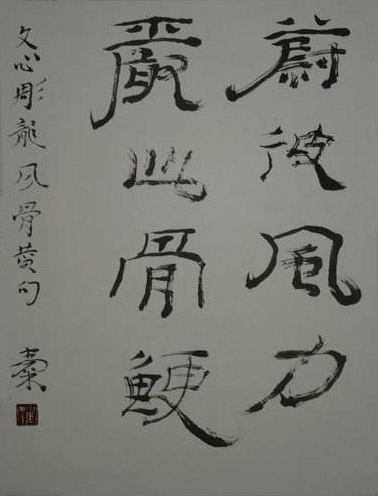 蔚彼風力
嚴此骨鯁
文心彫龍风骨赞句